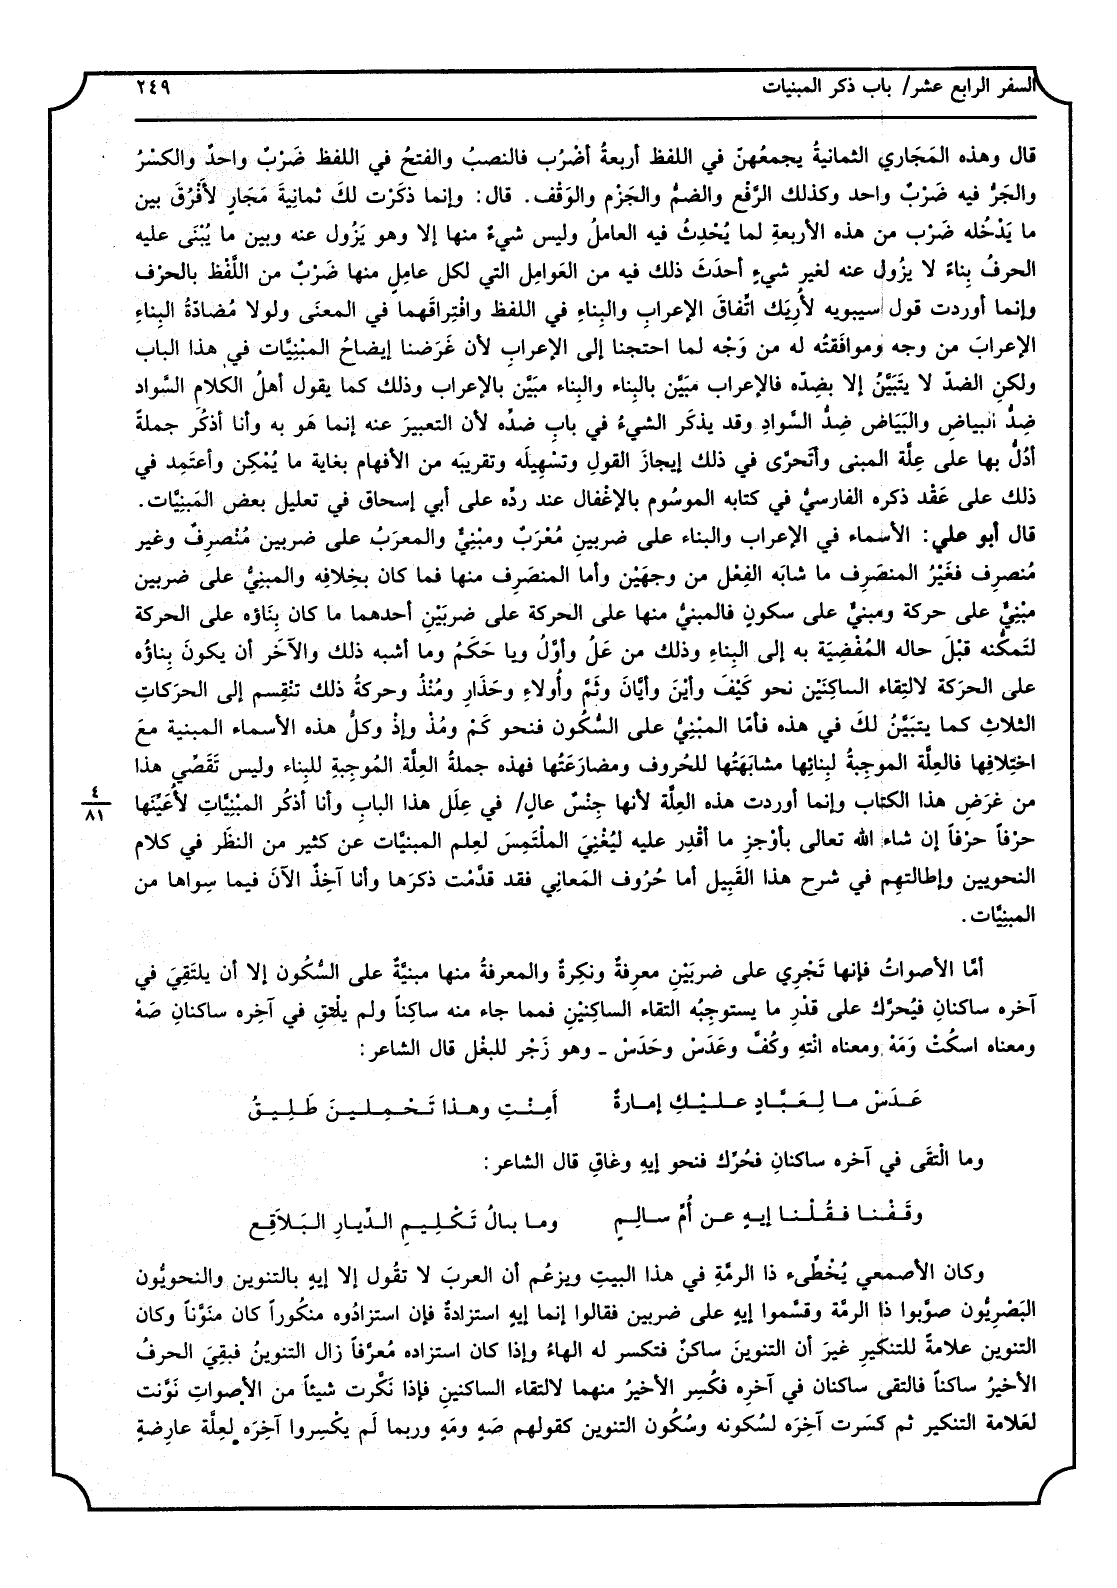 السفر الرابع عشر/ باب ذكر المبنيات
٢٤٩
قال وهذه المَجَاري الثمانيةُ يجمعُهنّ في اللفظ أربعةُ أضْرُب فالنصبُ والفتحُ في اللفظ ضَرْبٌ واحدٌ والكسْرُ
والجَرُّ فيه ضَرْبٌ واحد وكذلك الرَّفْع والضمُّ والجَزْم والوَقْف. قال: وإنما ذكَرْت لكَ ثمانِيةَ مَجَارٍ لأَفْرُقَ بين
ما يَدْخُله ضَرْب من هذه الأربعةِ لما يُحْدِثُ فيه العاملُ وليس شيءٌ منها إلا وهو يَزُول عنه وبين ما يُبْنَى عليه
الحرفُ بِناءً لا يزُول عنه لغير شيءٍ أحدَثَ ذلك فيه من العَوامِل التي لكل عامِلٍ منها ضَرْبٌ من اللَّفْظ بالحرْف
وإنما أوردت قول سيبويه لأُرِيَك اتِّفاقَ الإعرابِ والبِناءِ في اللفظ وافْتِراقَهما في المعنَى ولولا مُضادّةُ البِناءِ
الإعرابَ من وجه وموافَقتُه له من وَجْه لما احتجنا إلى الإعرابِ لأن غَرَضنا إيضاحُ المبْنِيَّات في هذا الباب
ولكنِ الضدّ لا يتَبَيَّنُ إلا بضِدّه فالإعراب مبَيَّن بالبناء والبناء مبَيَّن بالإعراب وذلك كما يقول أهلُ الكلامِ السَّواد
ضِدُّ البياضِ والبَيَاض ضِدُّ السَّوادِ وقد يذكَر الشيءُ في بابِ ضدّه لأن التعبيرَ عنه إنما هَو به وأنا أذكُر جملةً
أدُلُّ بها على عِلَّة المبنى وأتَحرَّى في ذلك إيجازَ القولِ وتسْهِيلَه وتقريبَه من الأفهام بغاية ما يُمْكِن وأعتَمِد في
ذلك على عَقْد ذكره الفارسيُّ في كتابه الموسُوم بالإغْفال عند ردّه على أبي إسحاق في تعليل بعض المَبنِيَّات.
قال أبو علي: الأسماء في الإعراب والبناء على ضربينِ مُعْرَبٌ ومبْنِيٌّ والمعربُ على ضربين مُنْصرِفٌ وغير
مُنصرِف فغَيْرُ المنصَرِف ما شابَه الفِعْل من وجهَيْن وأما المنصَرِف منها فما كان بخِلافِه والمبنِيُّ على ضربين
مبْنِيٌّ على حركة ومبنيٌّ على سكونٍ فالمبنيُّ منها على الحركة على ضربَيْنِ أحدهما ما كان بِنَاؤه على الحركة
لتَمكُّنه قبْلَ حاله المُفْضِيَة به إلى البِناءِ وذلك من عَلُ وأوَّلُ ويا حَكَمُ وما أشبه ذلك والآخَر أن يكونَ بِناؤُه
على الحرَكة لالتِقاء الساكنَيْن نحو كَيْفَ وأيْنَ وأيَّانَ وثَمَّ وأُولاءِ وحَذَارِ ومُنْذُ وحركةُ ذلك تنْقِسم إلى الحرَكاتِ
الثلاثِ كما يتبَيَّنُ لكَ في هذه فأمّا المبْنِيُّ على السُّكُون فنحو كَمْ ومُذْ وإذْ وكلُّ هذه الأسماء المبنية معَ
اختِلافِها فالعِلَّة الموجِبةُ لبِنائِها مشابَهَتُها للحُروف ومضارَعَتُها فهذه جملةُ العِلَّة المُوجِبةِ للبِناء وليس تَقَصِّي هذا
من غرَضِ هذا الكتاب وإنما أوردت هذه العِلَّة لأنها جِنْسٌ عالٍ/ في عِلَل هذا البابِ وأنا أذكُر المبْنِيَّاتِ لأُعَيِّنَها
٤
٨١
حرْفاً حرْفاً إن شاء الله تعالى بأوْجزِ ما أقْدِر عليه ليُغْنِيَ الملْتَمِسَ لعِلم المبنيَّات عن كثير من النظَر في كلام
النحويين وإطالتهِم في شرح هذا القَبِيل أما حُرُوف المَعانِي فقد قدَّمْت ذكرَها وأنا آخِذٌ الآنَ فيما سِواها من
المبنِيَّات.
أمَّا الأصواتُ فإنها تَجْرِي على ضربَيْنِ معرِفةٌ ونكِرةٌ والمعرفةُ منها مبنيَّةٌ على السُّكُون إلا أن يلتَقِيَ في
آخره ساكنانِ فيُحرَّك على قدْرِ ما يستوجِبُه التقاء الساكِنَيْنِ فمما جاء منه ساكِناً ولم يلْتقِ في آخِره ساكنانِ صَهْ
ومعناه اسكُتْ وَمَهْ ومعناه انْتهِ وكُفَّ وعَدَسْ وحَدَسْ ـ وهو زَجْر للبغْل قال الشاعر:
عَـدَسْ مـا لِـعَـبَّـادٍ عـلـيْـكِ إمـارةٌ
أَمِـنْـتِ وهـذا تَـحْـمِـلـيـنَ طَـلِـيـقُ
وما الْتقَى في آخره ساكنانِ فحُرِّك فنحو إيهِ وغاقِ قال الشاعر:
وقَـفْـنـا فـقُـلْـنـا إيـهِ عـن أُمِّ سـالِـمٍ
ومـا بـالُ تَـكْـلِـيـمِ الـدِّيـارِ الـبَـلاَقِـعِ
وكان الأصمعي يُخْطِّىء ذا الرمَّةِ في هذا البيتِ ويزعُم أن العربَ لا تقُول إلا إيهٍ بالتنوين والنحويُّون
البَصْرِيُّون صوَّبوا ذا الرمَّة وقسَّموا إيهِ على ضربين فقالوا إنما إيهِ استزادةٌ فإن استزادُوه منكُوراً كان منَوَّناً وكان
التنوين علامةً للتنكيرِ غيرَ أن التنوينَ ساكنٌ فتكسر له الهاءُ وإذا كان استزاده مُعرَّفاً زال التنوينُ فبقِيَ الحرفُ
الأخيرُ ساكناً فالتقى ساكنان في آخرِه فكُسِر الأخيرُ منهما لالتقاء الساكنينِ فإذا نَكَّرت شيئاً من الأصواتِ نَوَّنت
لعَلامة التنكير ثم كسَرت آخِرَه لسُكونه وسُكُون التنوين كقولهم صَهٍ ومَهٍ وربما لَم يكْسِروا آخِرَه لعِلَّة عارِضةٍ